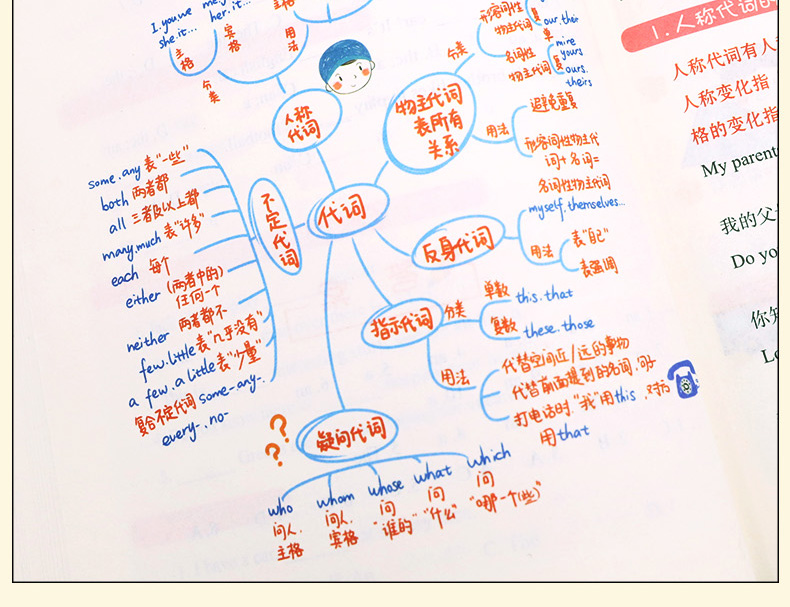 I.you.we
she.it...
her.it...
主格
宾格
用法
分类
人称
代词
分类
形容词性
物主代词
our.their
单
复
名词性
物主代词
mine
yours
ours.
theirs
物主代词
表所有
关系
用法
避免重复
形容词性物主代
词+名词=
名词性物主代词
代词
反身代词
myself.themselves...
用法
表"自己"
表强调
不定代词
some.any 表"一些"
both 两者都
all 三者及以上都
many.much 表"许多"
each 每个
either (两者中的)
任何一个
neither 两者都不
few.little 表"几乎没有"
a few.a little 表"少量"
复合不定代词 some-any-.
every-.no-
指示代词
分类
单数 this.that
复数 these.those
用法
代替空间近/远的事物
代替前面提到的名词.句子
打电话时."我"用this.对方
用that
疑问代词
??
who
问人.
主格
whom
问人.
宾格
whose
问
"谁的"
what
问
"什么"
which
问
"哪一个(些)"
1.人称代词的
人称代词有人
人称变化指
格的变化指
My parent
我的父
Do yo
你知